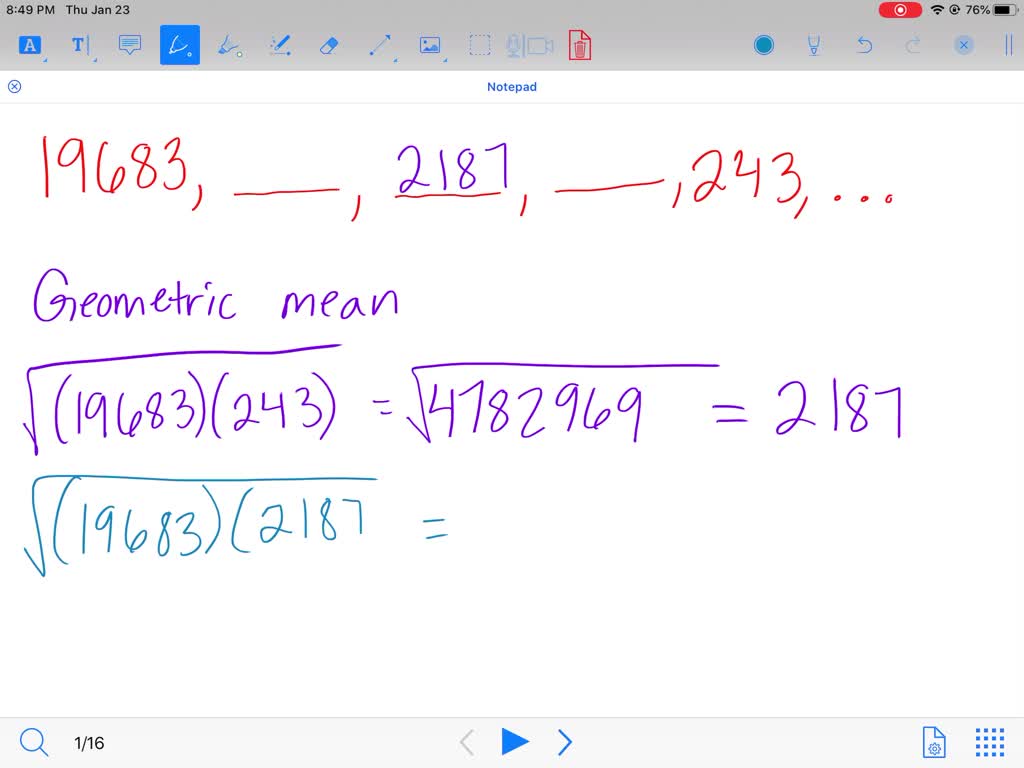 8:49 PM Thu Jan 23 76%
A T
Notepad
19683, ___, 2187, ___, 243, ...
Geometric mean
√(19683)(243) = √4782969 = 2187
√(19683)(2187 =
1/16